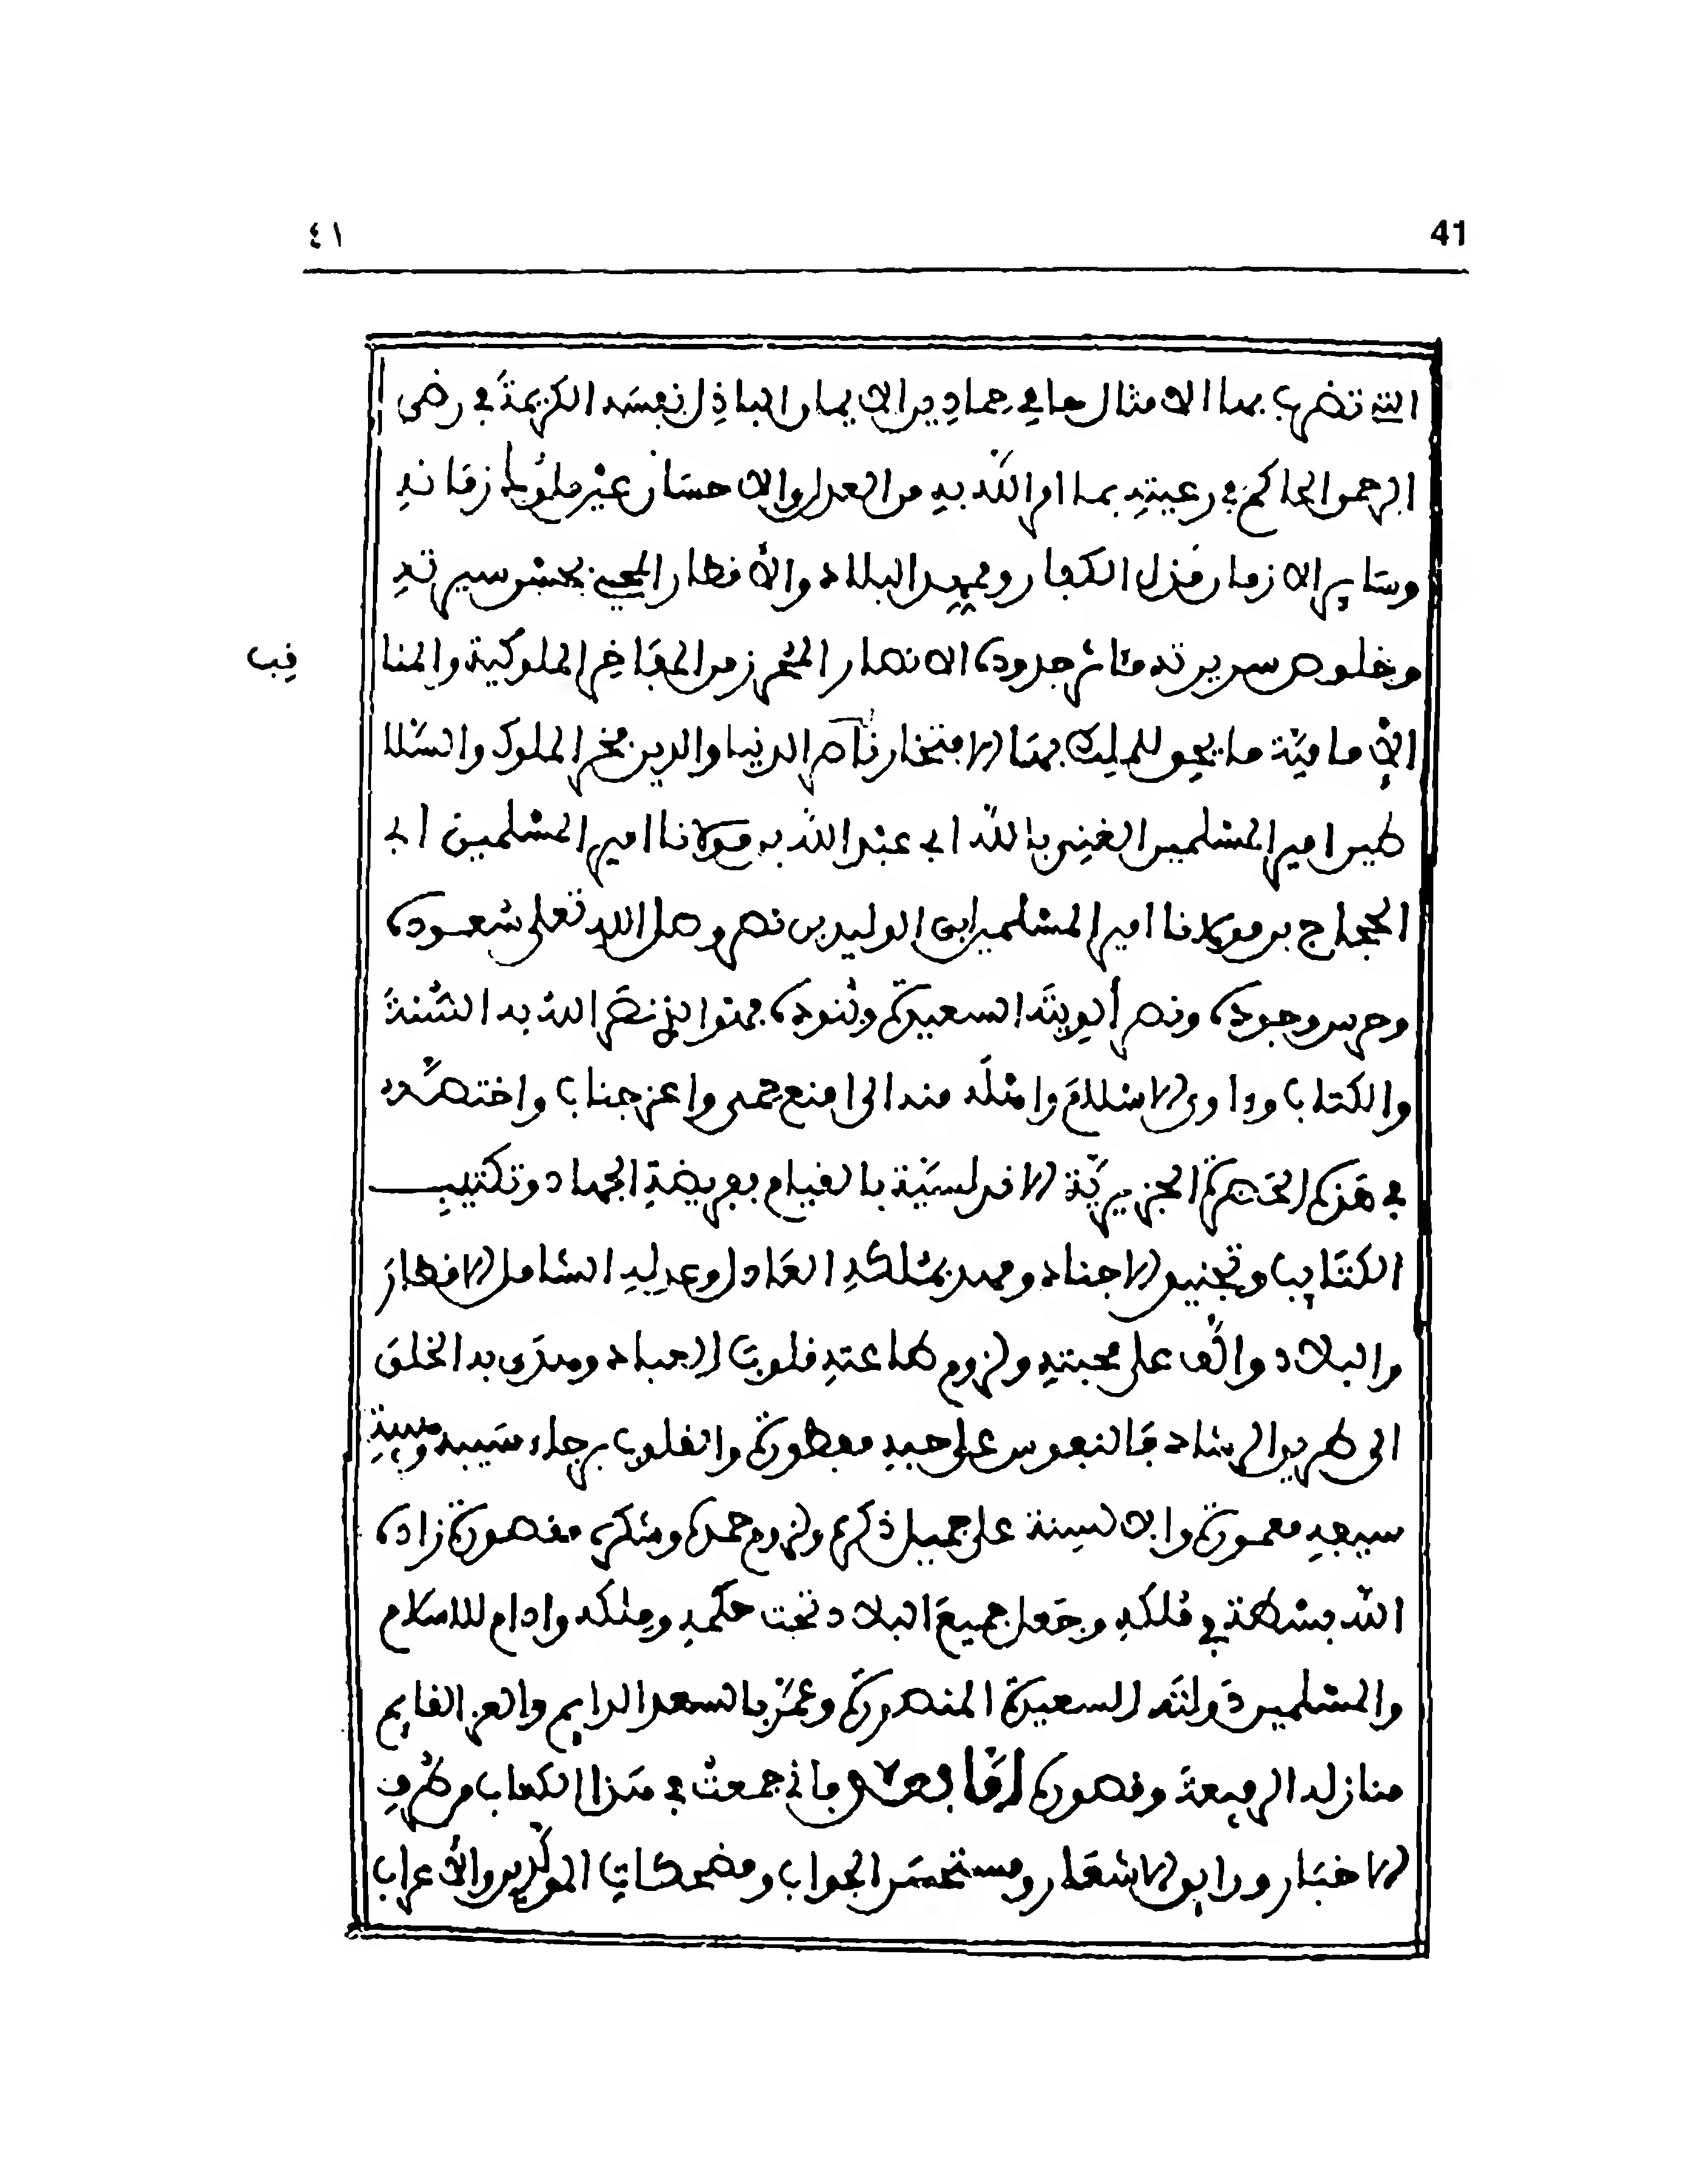 ٤١ 41
التى تضرب بها الامثال حامى حمى دين الايمان الباذل نفسه الكريمة في رضى
الرحمن الحاكم في رعيته بما امر الله به من العدل والاحسان عين ملوك زمانه
وساير الازمان مذل الكفار وممهد البلاد والاقطار المحيي بحسن سيرته
وخلوص سريرته مئاثر جدوده الانصار المحرز من المفاخر الملوكية والمنا
فب
الافامية ما يحق للملك بها الافتخار ناصر الدنيا والدين فخر الملوك والسلا
طين امير المسلمين الغني بالله ابي عبد الله بن مولانا امير المسلمين ابي
الحجاج بن مولانا امير المسلمين ابي الوليد بن نصر وصل الله تعلى سعوده
وحرس وجوده ونصر ألويته السعيدة وبنوده فهو الذي نصر الله به السنة
والكتاب وءاوى الاسلام واهله منه الى امنع حمى واعز جناب واختصه
في هذه الحضرة الجزيرية الاندلسية بالقيام بفريضة الجهاد وتكتيب
الكتايب وتجنيد الاجناد ومهد بملكه العادل وعدله الشامل الاقطار
والبلاد والف على محبته ولزوم طاعته قلوب العباد وهدى به الخلق
الى طريق الرشاد فالنفوس على حبه مفطورة والقلوب برجاء سيبه وهيبة
سيفه معمورة والالسنة على جميل ذكره ولزوم حمده وشكره مقصورة زاده
الله بسطة في ملكه وجعل جميع البلاد تحت حكمه وملكه وادام للاسلام
والمسلمين دولته السعيدة المنصورة وعمر بالسعد الدايم والعز القايم
منازله الرفيعة وقصوره اما بعد فاني جمعت في هذا الكتاب من طرف
الاخبار ورايق الاشعار ومستحسن الجواب ومضحكات المولدين والاعراب